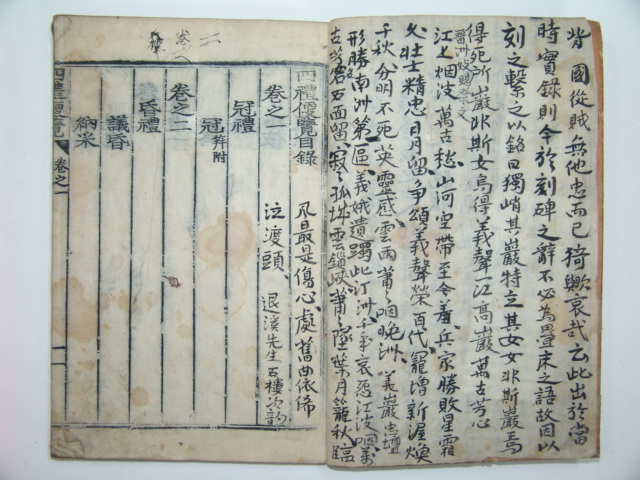 背國從賊無他忠而已猗歟哀哉云此出於當
時實錄則今於刻碑之辭不必為疊床之語故因以
刻之繫之以銘曰獨峭其巖特立其女女非斯巖焉
得死所巖非斯女烏得義聲一江高巖萬古芳心
江上烟波萬古愁山河空帶至今羞兵家勝敗星霜
久壯士精忠日月留爭頌義聲榮百代寵增新渥煥
千秋分明不死英靈感雲雨蕭蕭咽晚洲 義巖忠壇
形勝南洲第一區義娥遺躅此汀洲千年哀怨江波咽萬
古芳名石面留寂寂孤城雲鎖峽蕭蕭墜葉月籠秋臨
風最是傷心處舊曲依俙
泣渡頭 退溪先生 次韵
四禮便覽目錄
卷之一
冠禮
冠 笄附
卷之二
昏禮
議昏
納采
四禮便覽 卷之一